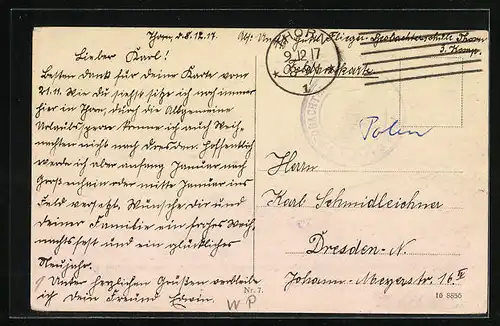 Thorn d. 8.12.17.
Lieber Karl!
Besten Dank für deine Karte vom
21.11. Wie du siehst sitze ich noch immer
hier in Thorn, durch die Allgemeine
Urlaubssperre komme ich auch Weih-
nachten nicht nach Dresden. Hoffentlich
werde ich aber anfang Januar nach
Großenhain oder mitte Januar ins
Feld versetzt. Wünsche dir und
deiner Familie ein frohes Weih-
nachtsfest und ein glückliches
Neujahr.
Unter herzlichen Grüßen verbleibe
ich Dein Freund Erwin.
Abs: Beobachterschule Thorn
3. Komp.
THORN
9.12.17
1
Feldpostkarte
Polen
Herrn
Karl Schmidleichner
Dresden-N.
Johann-Meyerstr. 16 II
Nr. 7.
W P
16 8856